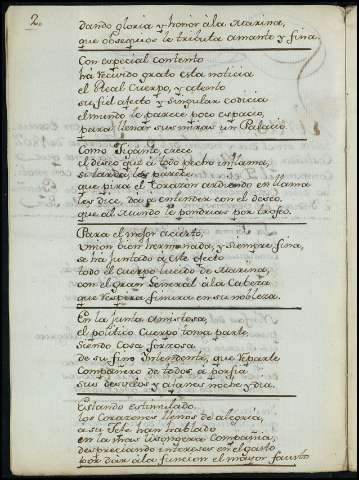 2.
dando gloria y honor àla Marina,
que obsequios le tributa amante y fina.
Con especial contento
hà recivido grato esta noticia
el Real Cuerpo, y atento
su fiel afecto y singular codicia
el mundo le parece poco espacio,
para llenar sus miras un Palacio.
Como Gigante, crece
el deseo que à todo pecho inflama,
se tarda, les parece
que pira el Corazon ardiendo en llama
les dice, dad à entender con el deseo,
que al Mundo le pondrias por trofeo.
Para el mejor acierto,
Union bien hermanada, y siempre fina,
se hà juntado à este efecto
todo el Cuerpo lucido de Marina,
con el gran General à la Cabeza
que respira finura en su nobleza.
En la junta amistosa,
el politico Cuerpo toma parte,
siendo Cosa forzosa
de su fino Intendente, que reparte
Compañero de todos à porfia
sus desvelos y afanes noche y dia.
Estando estimulado
los Corazones llenos de alegria,
a su Jefe han hablado
en la mas lisongera Compañia,
despreciando intereses en el gasto
por dàr àla funcion el mayor fausto